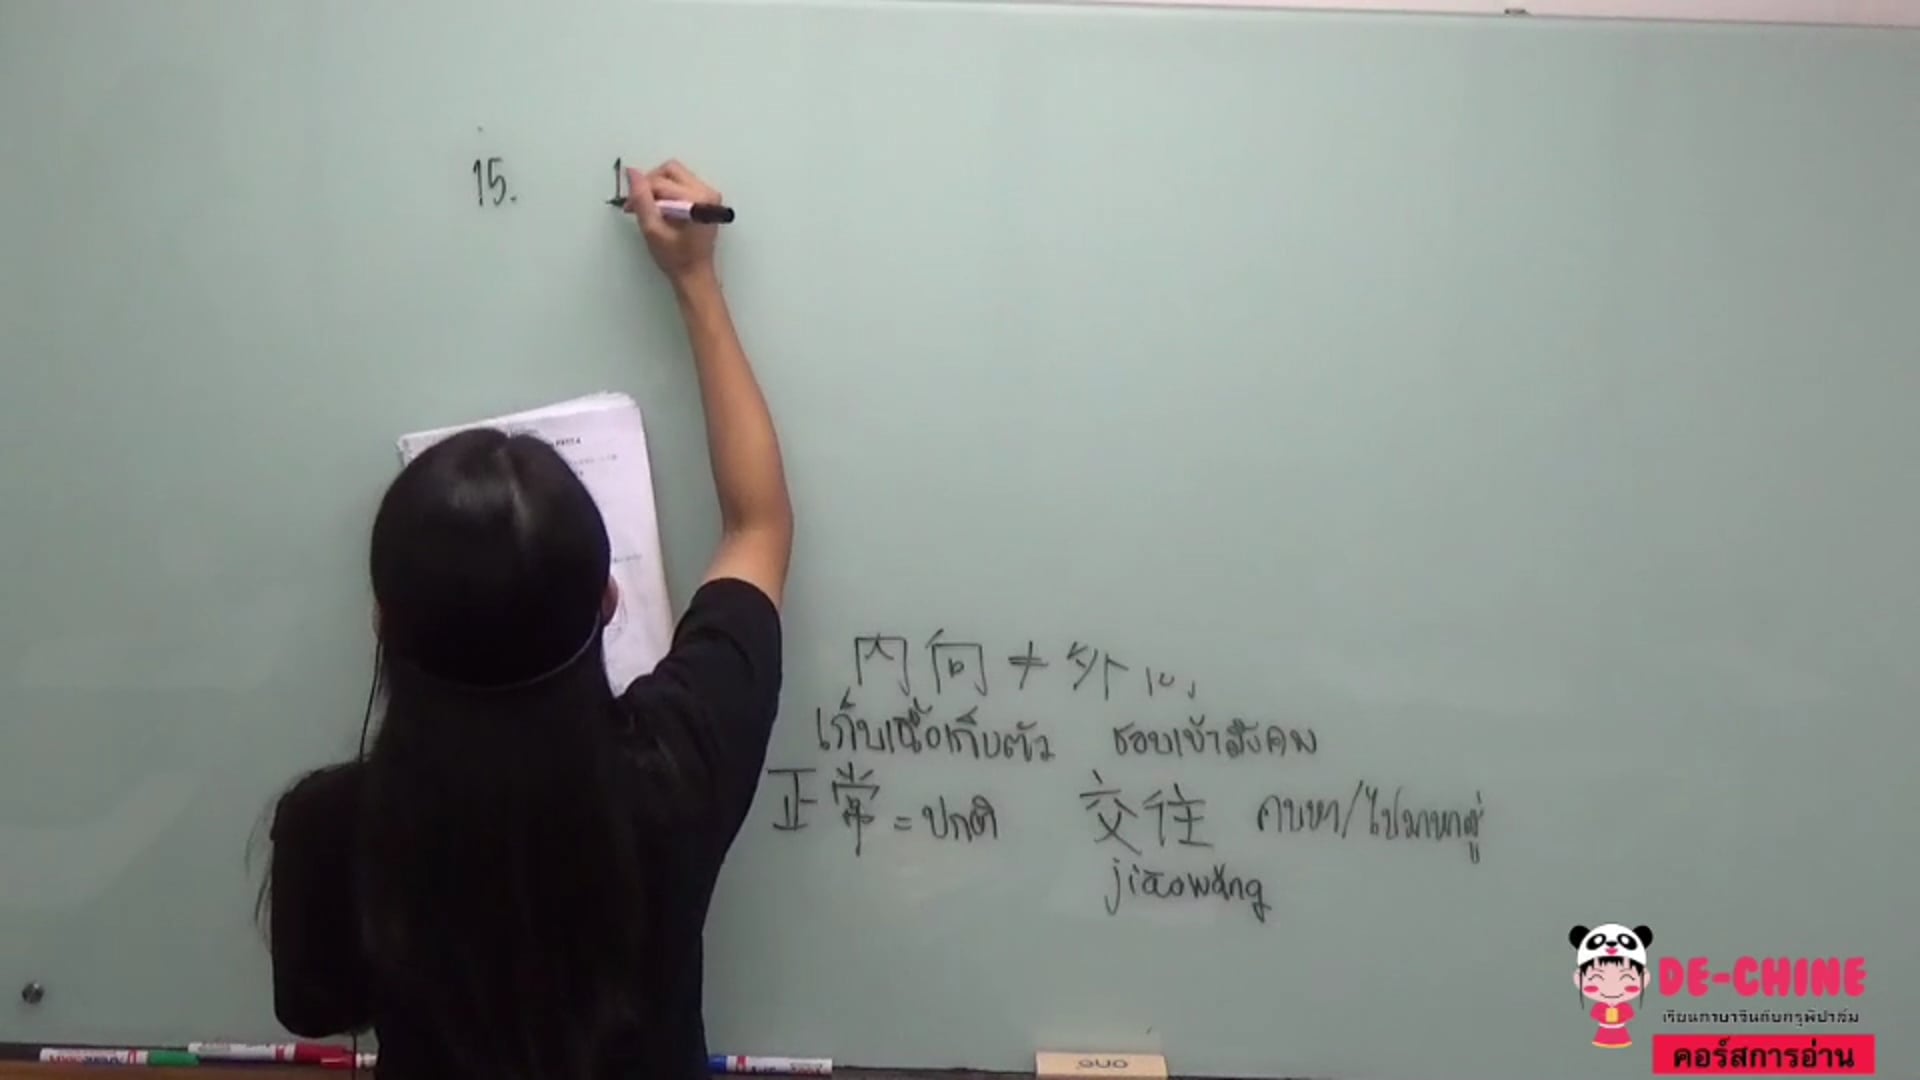 15. 1
内向 ≠ 外向
เก็บเนื้อเก็บตัว ชอบเข้าสังคม
正常 = ปกติ 交往 คบหา/ไปมาหาสู่
jiāowǎng
DE-CHINE
เรียนภาษาจีนกับครูพี่ป่าล์ม
คอร์สการอ่าน